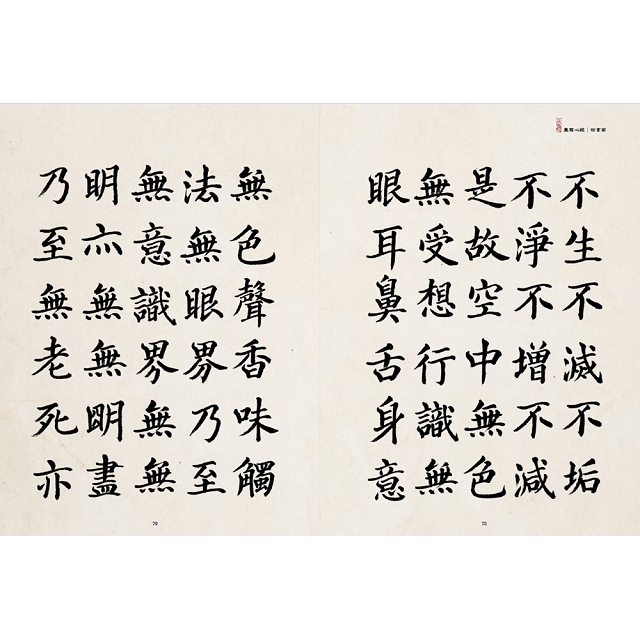 不生不滅不垢
不淨不增不減
是故空中無色
無受想行識無
眼耳鼻舌身意
無色聲香味觸
法無眼界乃至
無意識界無無
明亦無無明盡
乃至無老死亦
79